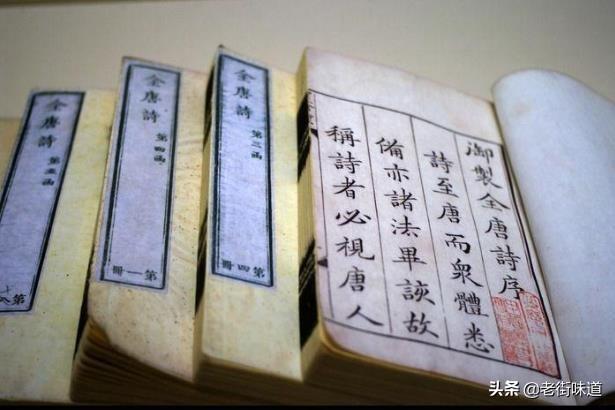 御製全唐詩序
詩至唐而衆體悉
備亦諸法畢該故
稱詩者必視唐人
全唐詩
第三函
第四冊
全唐詩
第四函
第一冊
全唐詩
第五函
头条 @老街味道